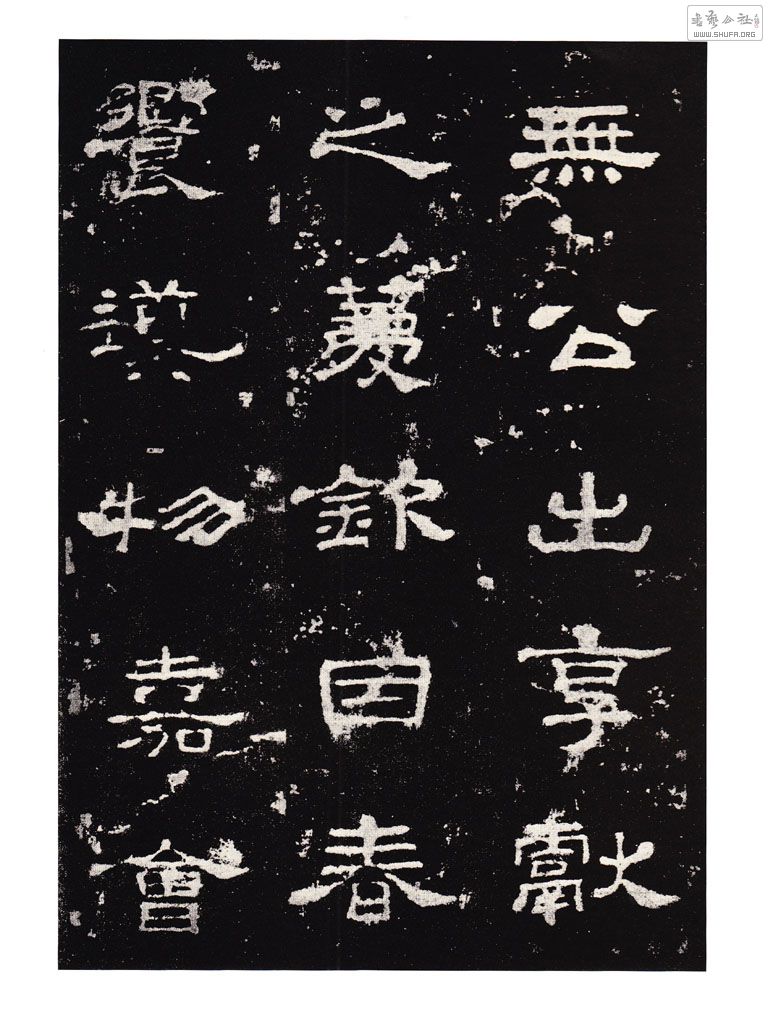 書藝公社
WWW.SHUFA.ORG
無公出享獻
之薦欽因春
饗物嘉會